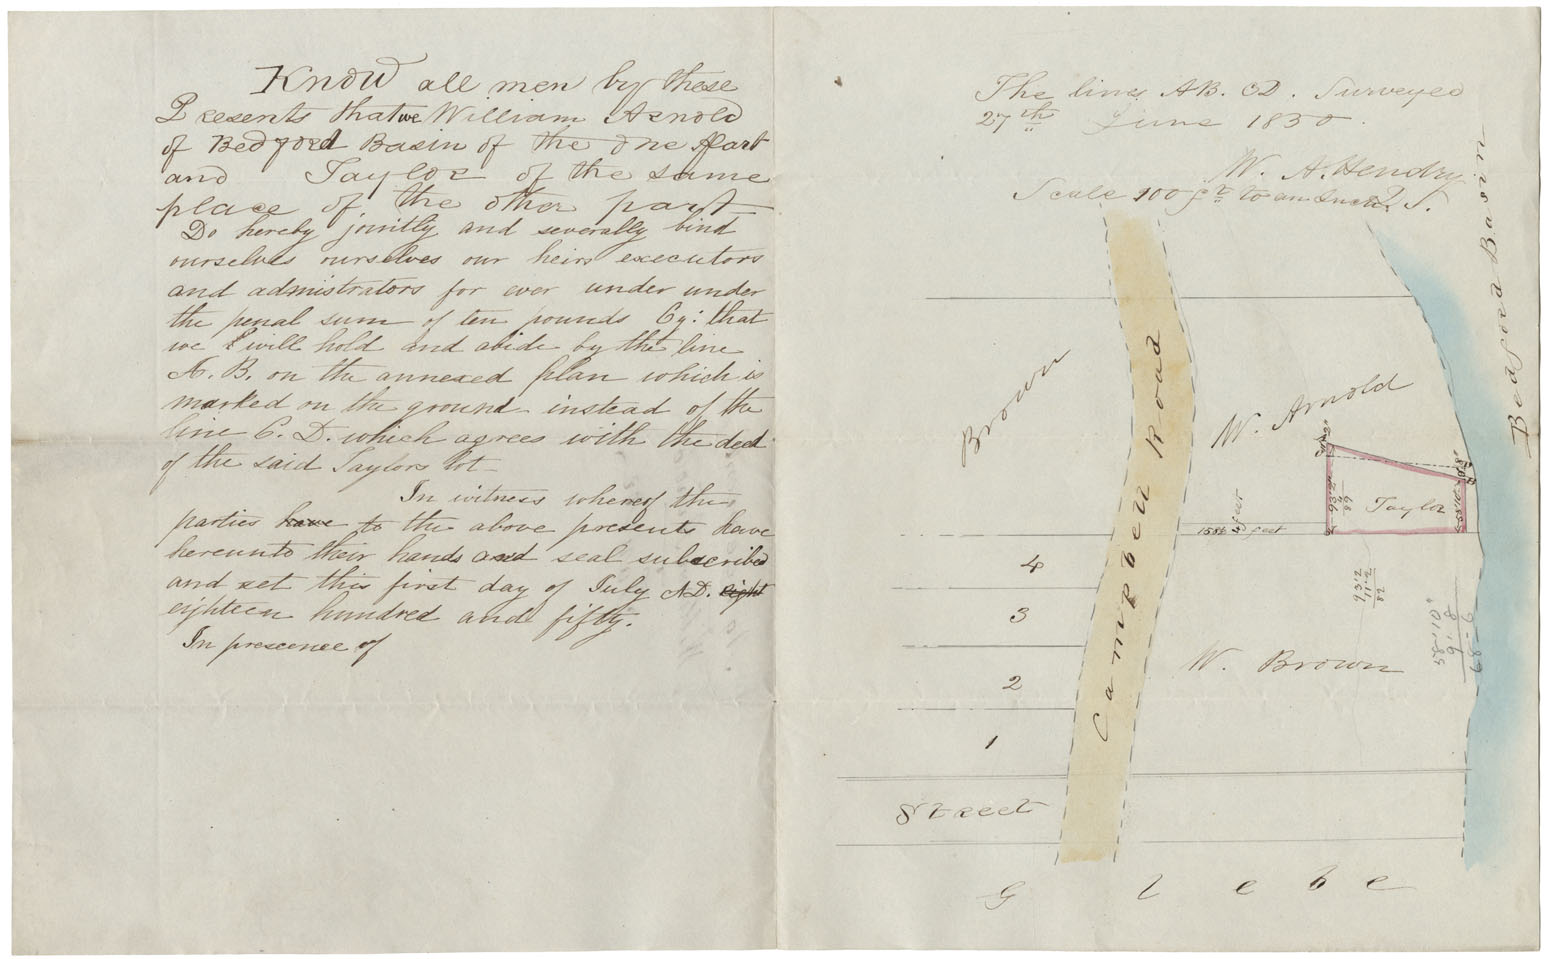 Know all men by these
Presents that we William Arnold
of Bedford Basin of the one Part
and Taylor of the same
place of the other part
Do hereby jointly and severally bind
ourselves ourselves our heirs executors
and admistrators for ever under under
the penal sum of ten pounds Cy: that
we will hold and abide by the line
A. B. on the annexed plan which is
marked on the ground instead of the
line C. D. which agrees with the deed
of the said Taylors lot
In witness whereof the
parties have to the above presents have
hereunto their hands and seal subscribed
and set this first day of July A.D. eight
eighteen hundred and fifty.
In prescence of
The lines AB. CD. Surveyed
27th June 1850.
W. A. Hendry
Scale 100 ft to an Inch D. S.
Bedford Basin
Campbell Road
Brown
W. Arnold
Taylor
93'2"
89
58'10"
9'8"
158½ feet
4 feet
4
3
2
1
W. Brown
93'2
11'2
82
58'10"
9'8
68-6
Street
Glebe